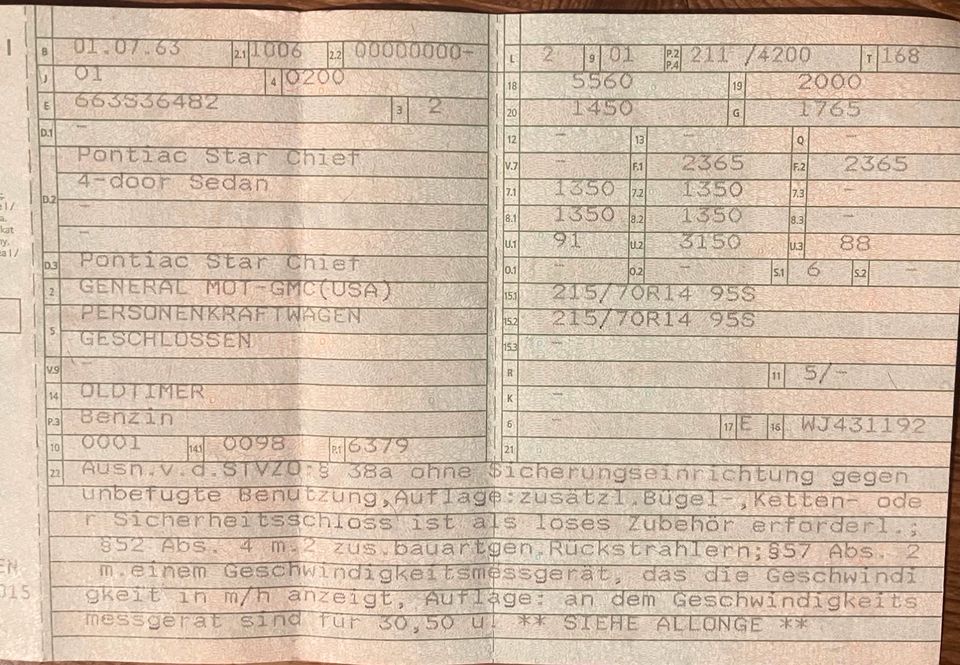 B 01.07.63 2.1 1006 2.2 00000000-
J 01 4 0200
E 663S36482 3 2
D.1 -
Pontiac Star Chief
D.2 4-door Sedan
-
-
D.3 Pontiac Star Chief
2 GENERAL MOT-GMC(USA)
5 PERSONENKRAFTWAGEN
GESCHLOSSEN
V.9 -
14 OLDTIMER
P.3 Benzin
10 0001 14.1 0098 P.1 6379
L 2 9 01 P.2 P.4 211 /4200 T 168
18 5560 19 2000
20 1450 G 1765
12 - 13 - Q -
V.7 - F.1 2365 F.2 2365
7.1 1350 7.2 1350 7.3 -
8.1 1350 8.2 1350 8.3 -
U.1 91 U.2 3150 U.3 88
O.1 - O.2 - S.1 6 S.2 -
15.1 215/70R14 95S
15.2 215/70R14 95S
15.3 -
R 11 5/-
K -
6 - 17 E 16 WJ431192
21
22 Ausn.v.d.STVZO:§ 38a ohne Sicherungseinrichtung gegen
unbefugte Benutzung,Auflage:zusätzl.Bügel-,Ketten- ode
r Sicherheitsschloss ist als loses Zubehör erforderl.;
§52 Abs. 4 m.2 zus.bauartgen.Rückstrahlern;§57 Abs. 2
m.einem Geschwindigkeitsmessgerät, das die Geschwindi
gkeit in m/h anzeigt, Auflage: an dem Geschwindigkeits
messgerät sind für 30,50 u. ** SIEHE ALLONGE **